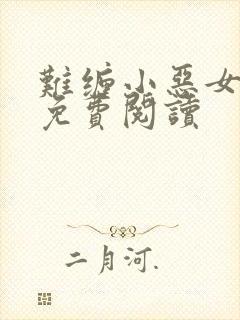 難缠小惡女
免費閱讀
二月河.